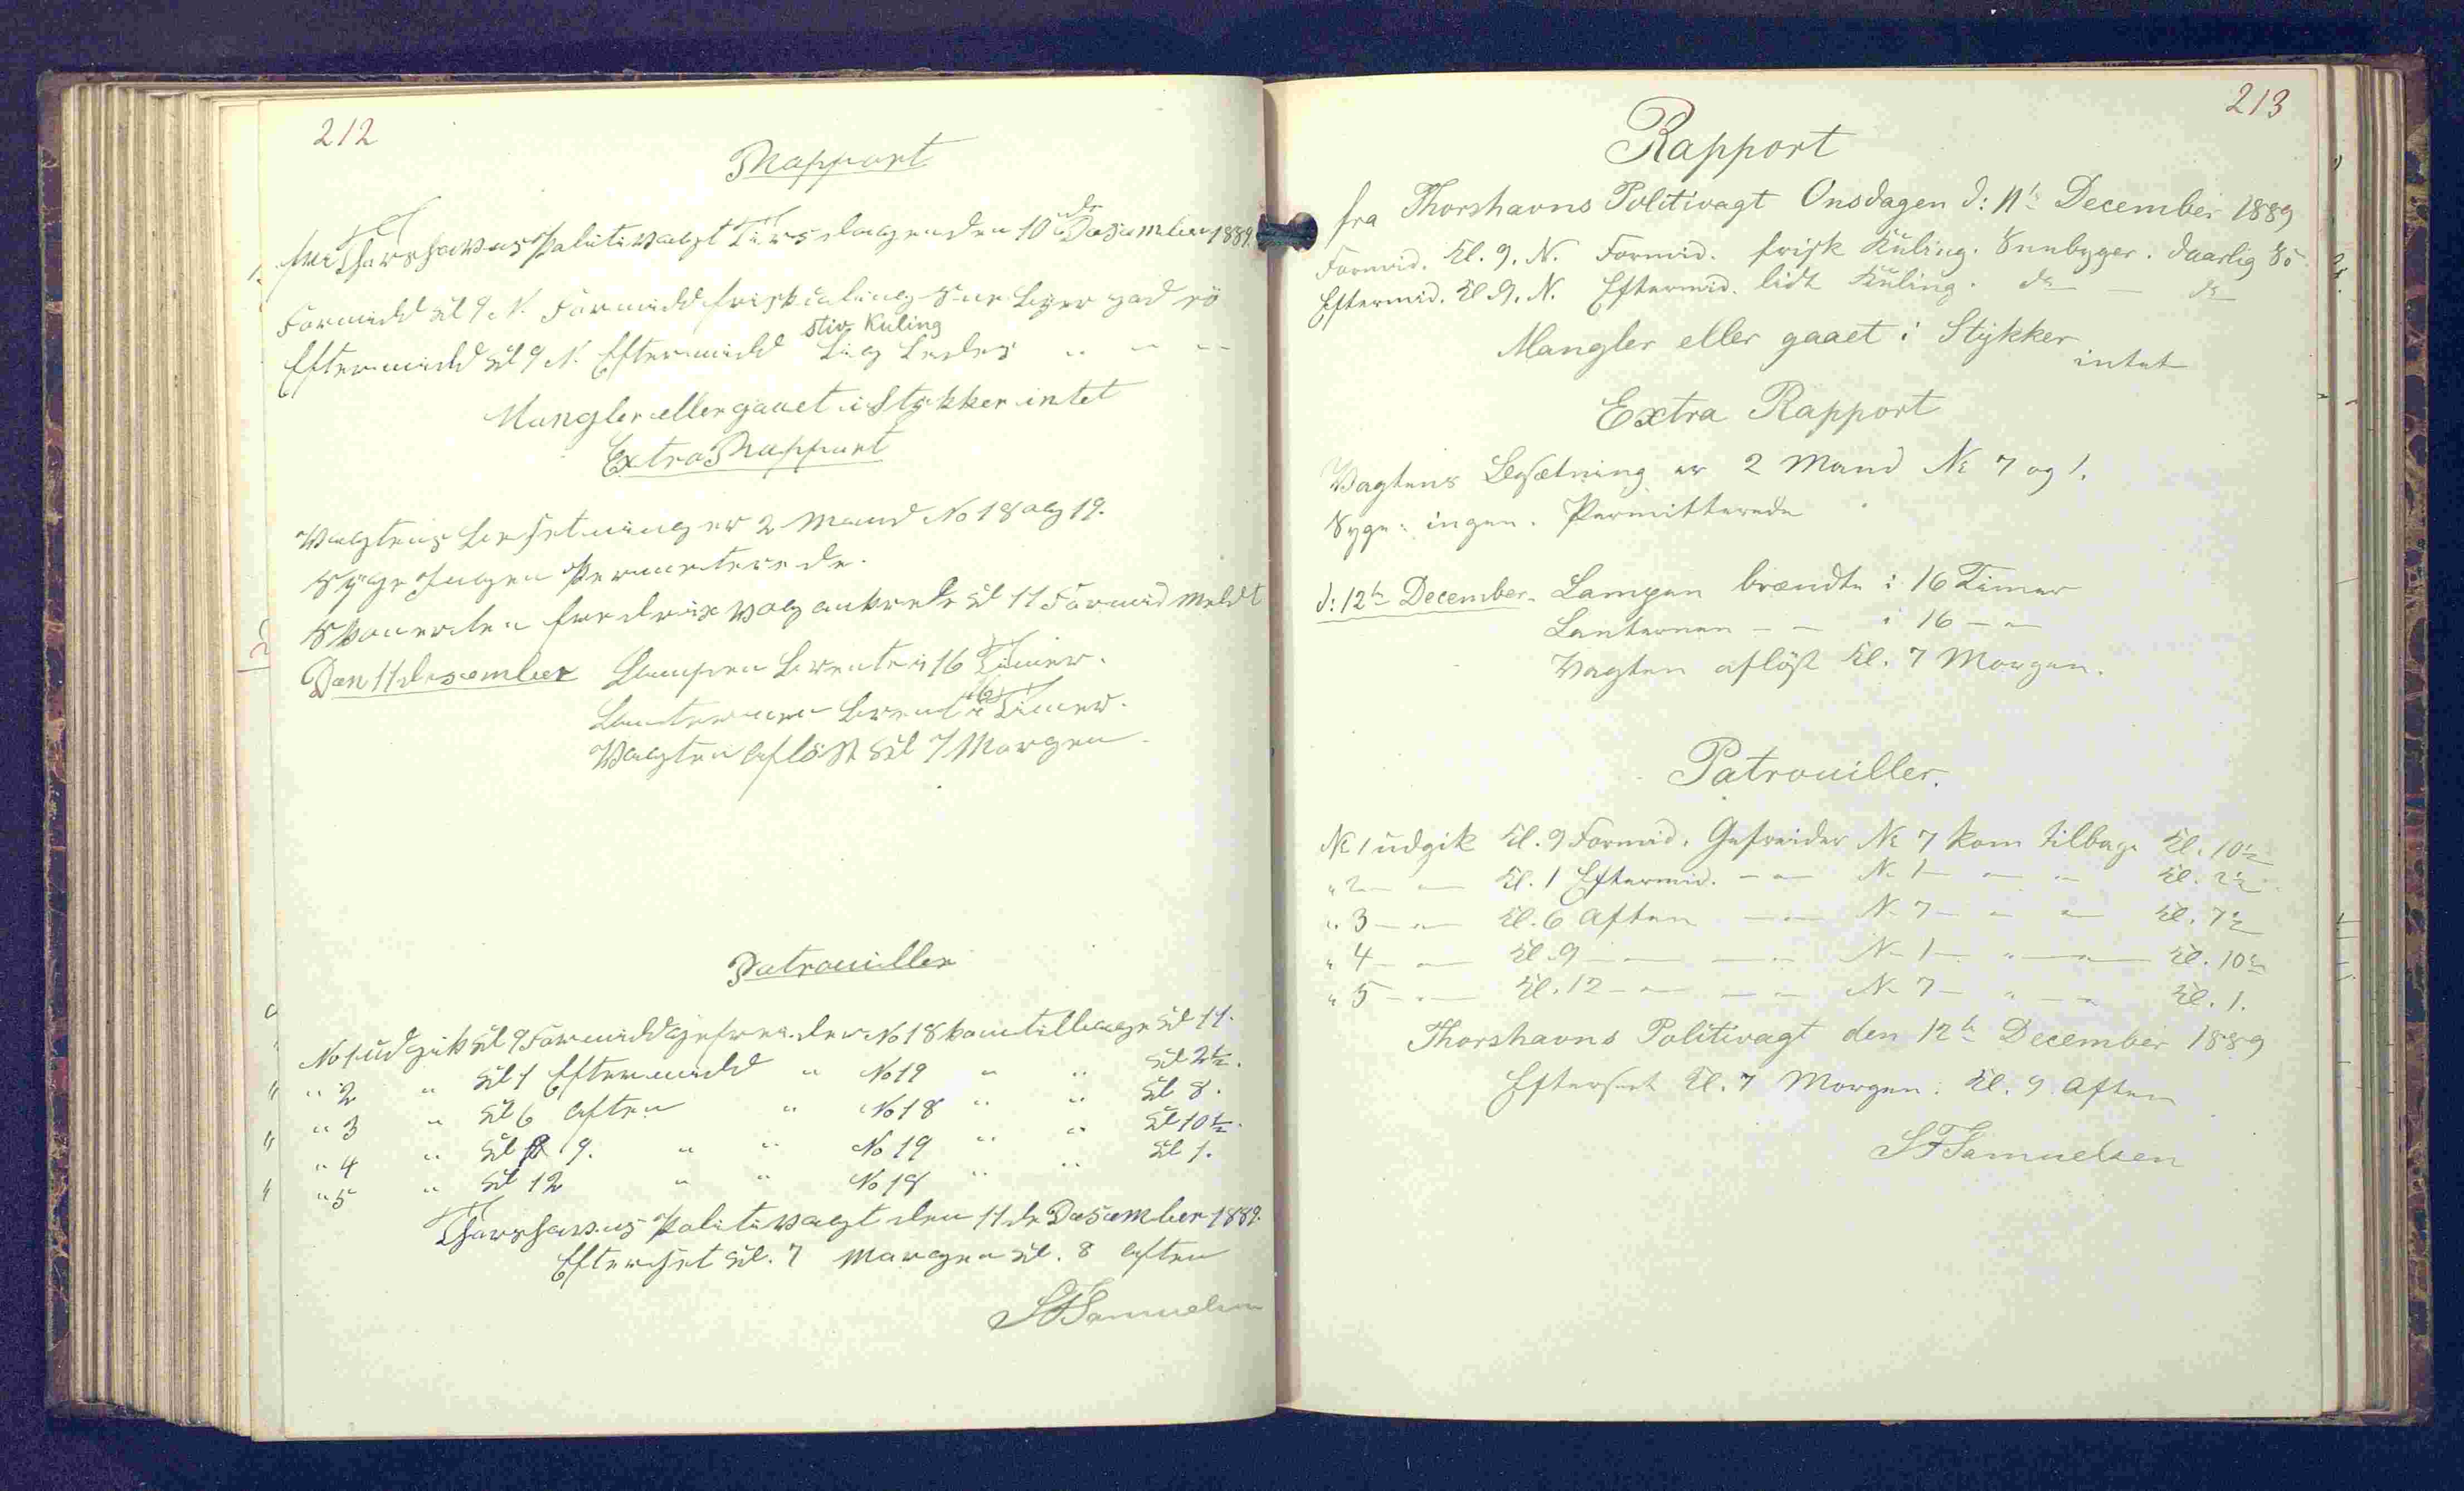 212
Rapport
fra Thorshavns Politivagt Tirsdagen den 10de Desember 1889.
Formidd Kl 9 N. Formidd frisk Culing Sne byer god sö
Eftermidd Kl 9 N. Eftermidd stiv Kuling Lig Ledes " " "
Mangler eller gaaet i Stykker intet
Extra Rapport
Vagtens besetning er 2 Mand No 18 og 19.
Syge Ingen Permeterede.
Skonerten fredrix vog ankrede Kl 11 Formid Meldt
Den 11 desember Lampen brente i 16 Timer.
Lanternen brent i 16 Timer.
Vagten aflöst Kl 7 Morgen
Patrouiller
No 1 udgik Kl 9 Formidd gefreider No 18 kom tilbage Kl 11.
" 2 " Kl 1 Eftermidd " No 19 " " Kl 2½.
" 3 " Kl 6 Aften " No 18 " " Kl 8.
" 4 " Kl 9. " " No 19 " " Kl 10½.
" 5 " Kl 12 " " No 18 " " Kl 1.
Thorshavns Politivagt den 11de Desember 1889.
Efterset Kl. 7 Morgen Kl. 8 Aften
SFSamuelsen
213
Rapport
fra Thorshavns Politivagt Onsdagen d: 11te December 1889
Formid. Kl. 9. N. Formid. frisk Kuling. Snebyger. daarlig Sö
Eftermid. Kl. 9. N. Eftermid. lidt Kuling. do — do
Mangler eller gaaet i Stykker intet
Extra Rapport
Vagtens Besætning er 2 Mand No 7 og 1.
Syge: ingen. Permitterede "
d: 12te December. Lampen brændte i 16 Timer
Lanternen — — i 16 — " —
Vagten aflöst Kl. 7 Morgen.
Patrouiller.
No 1 udgik Kl. 9 Formid. Gefreider No 7 kom tilbage Kl. 10½
" 2 — " — Kl. 1 Eftermid. — " — No 1 — " — " Kl. 2½
" 3 — " — Kl. 6 Aften — " — No 7 — " — " — Kl. 7½
" 4 — " — Kl. 9 — " — — " — No 1 — " — " — Kl. 10½
" 5 — " — Kl. 12 — " — — " — No 7 — " — " Kl. 1.
Thorshavns Politivagt den 12te December 1889
Efterset Kl. 7 Morgen: Kl. 9 Aften
SFSamuelsen